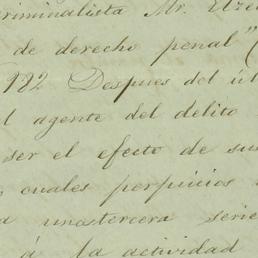 criminalista Mr.
de derecho penal" (
182 Despues del úl
l agente del delito
ser el efecto de sus
cuales perjuicios
a unastercera serie
á la actividad